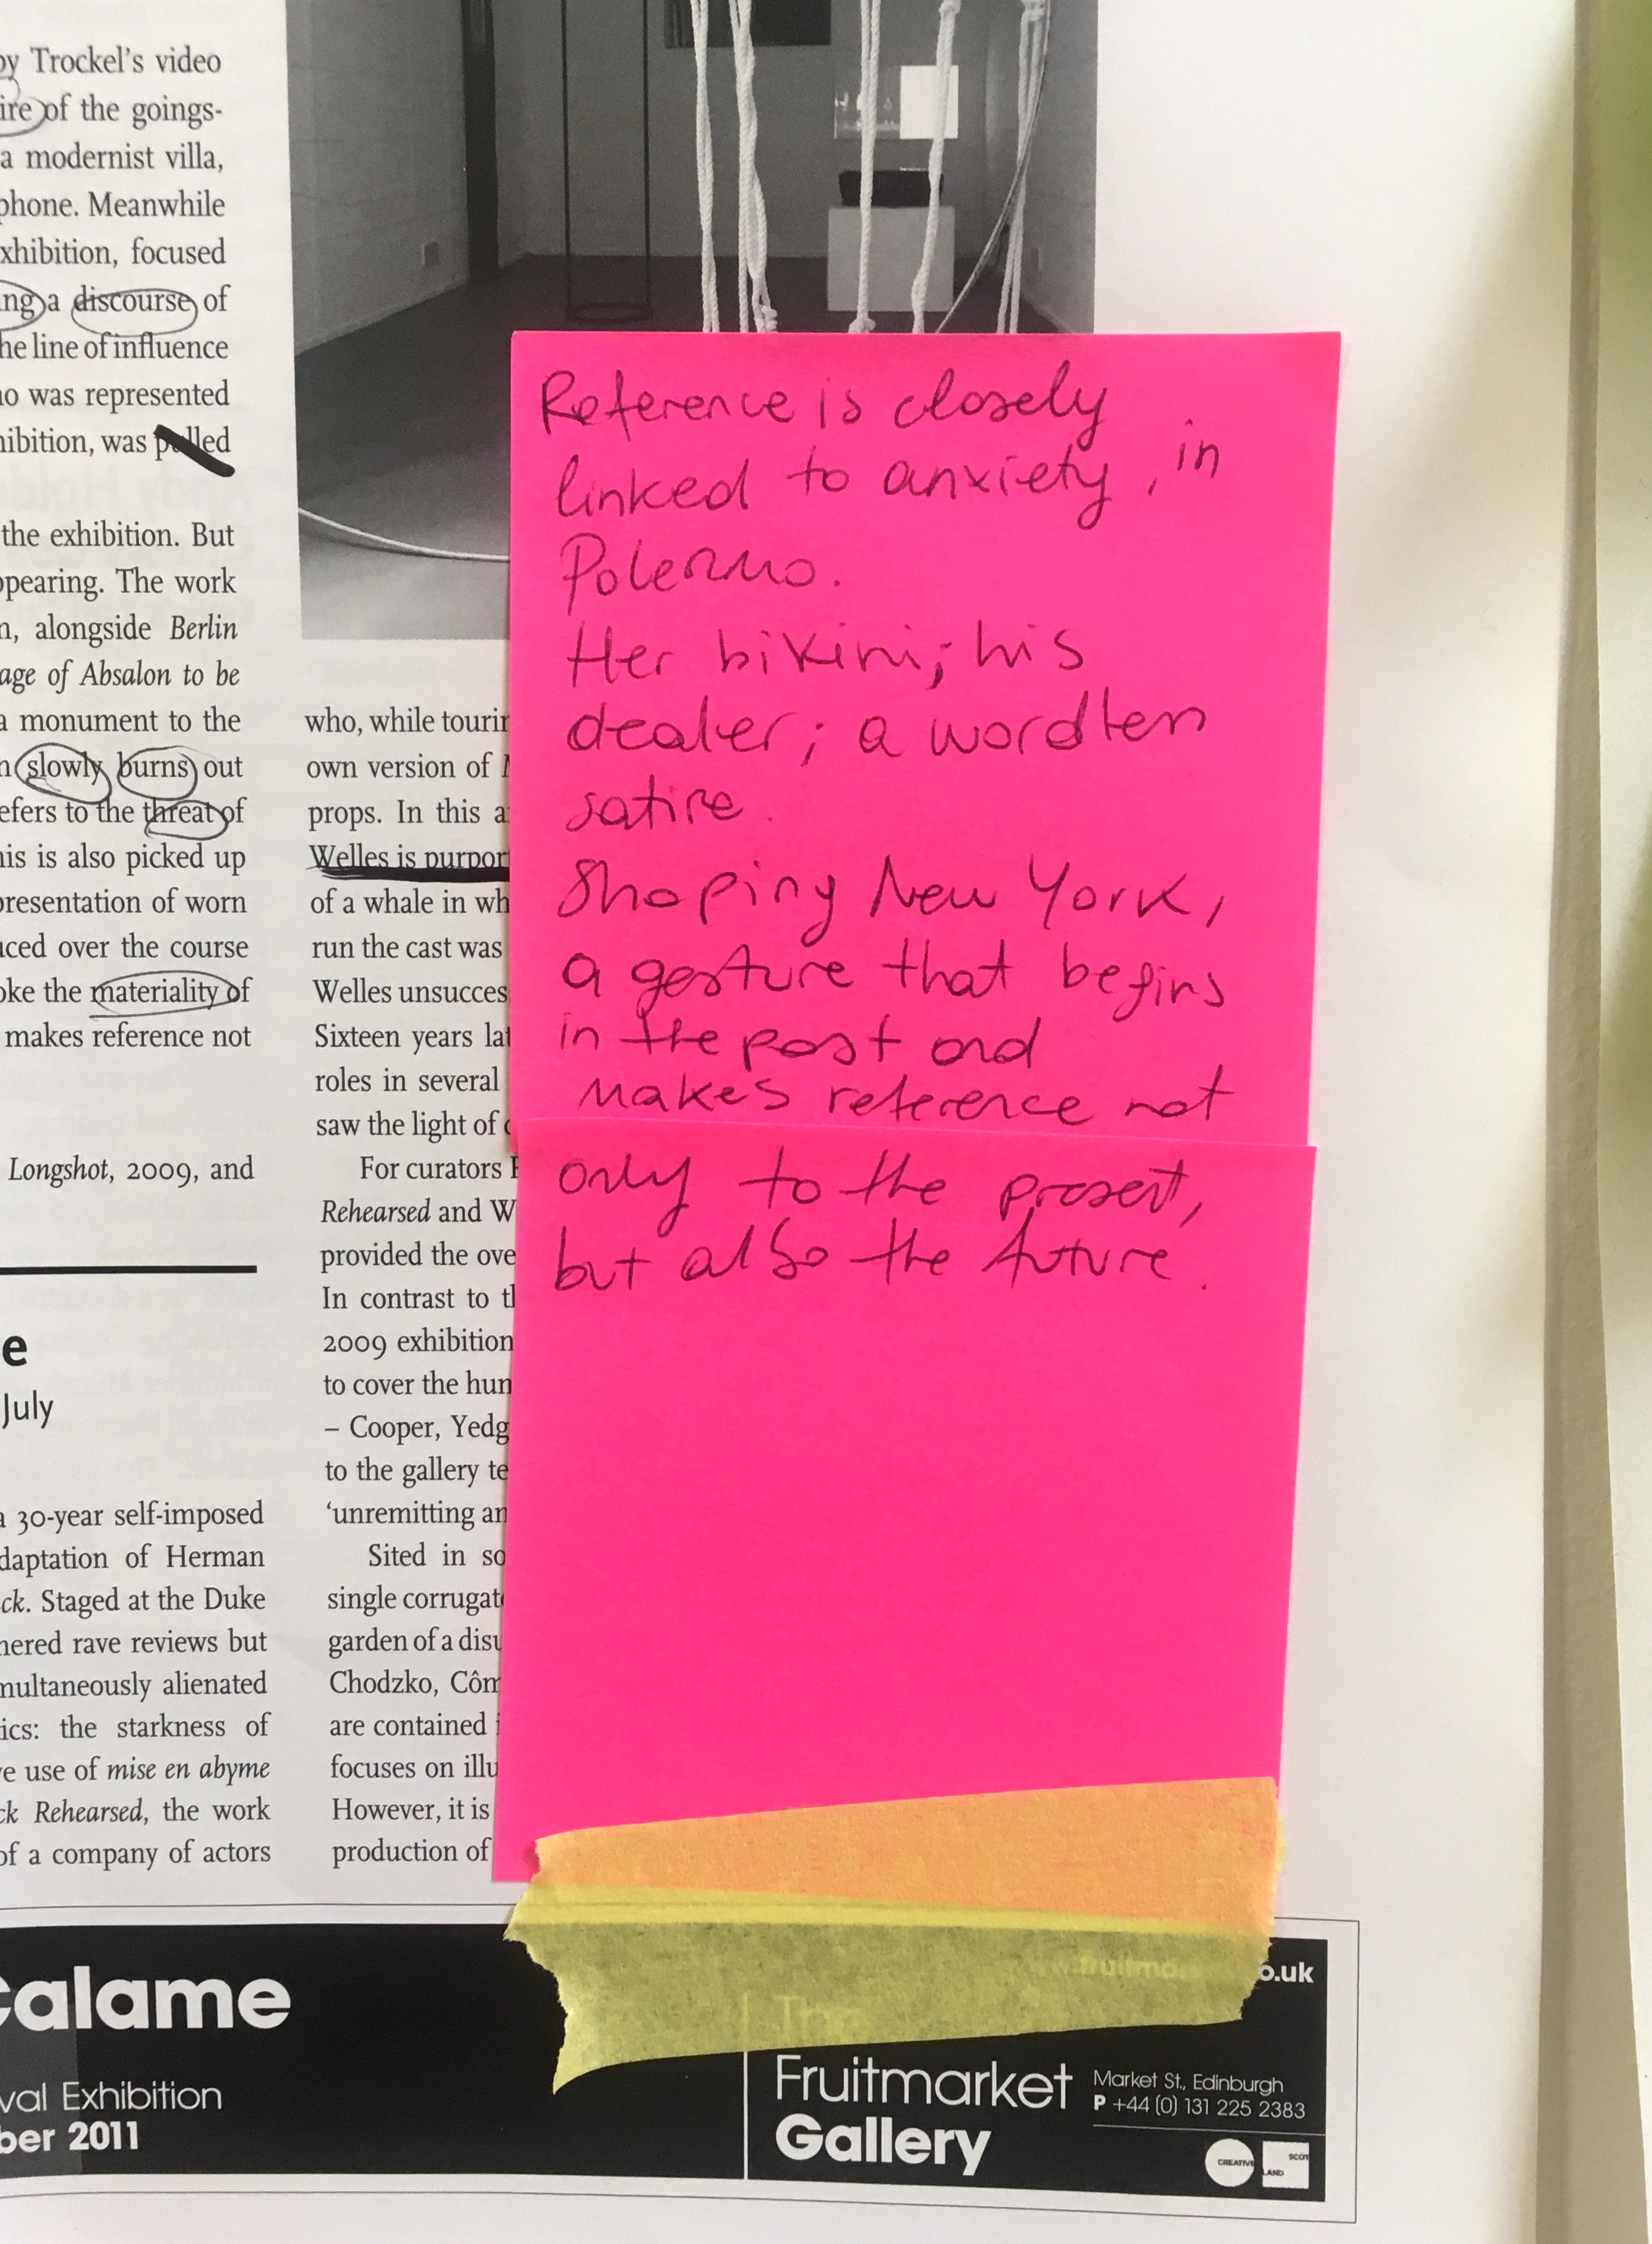 by Trockel's video
ire of the goings-
a modernist villa,
phone. Meanwhile
xhibition, focused
ng a discourse of
he line of influence
no was represented
hibition, was pulled
the exhibition. But
ppearing. The work
n, alongside Berlin
age of Absalon to be
a monument to the
n slowly burns out
efers to the threat of
his is also picked up
presentation of worn
uced over the course
oke the materiality of
makes reference not
Longshot, 2009, and
e
July
a 30-year self-imposed
daptation of Herman
ck. Staged at the Duke
nered rave reviews but
multaneously alienated
ics: the starkness of
ve use of mise en abyme
ck Rehearsed, the work
of a company of actors
who, while tourin
own version of
props. In this a
Welles is purpor
of a whale in wh
run the cast was
Welles unsucces
Sixteen years lat
roles in several
saw the light of
For curators
Rehearsed and W
provided the ove
In contrast to t
2009 exhibition
to cover the hun
– Cooper, Yedg
to the gallery te
'unremitting an
Sited in so
single corrugat
garden of a disu
Chodzko, Côm
are contained i
focuses on illu
However, it is
production of
Reference is closely
linked to anxiety, in
Palermo.
Her bikini; his
dealer; a wordless
satire.
Shaping New York,
a gesture that begins
in the past and
makes reference not
only to the present,
but also the future.
calame
val Exhibition
ber 2011
www.fruitma o.uk
The
Fruitmarket
Gallery
Market St., Edinburgh
P +44 (0) 131 225 2383
CREATIVE SCOT
LAND